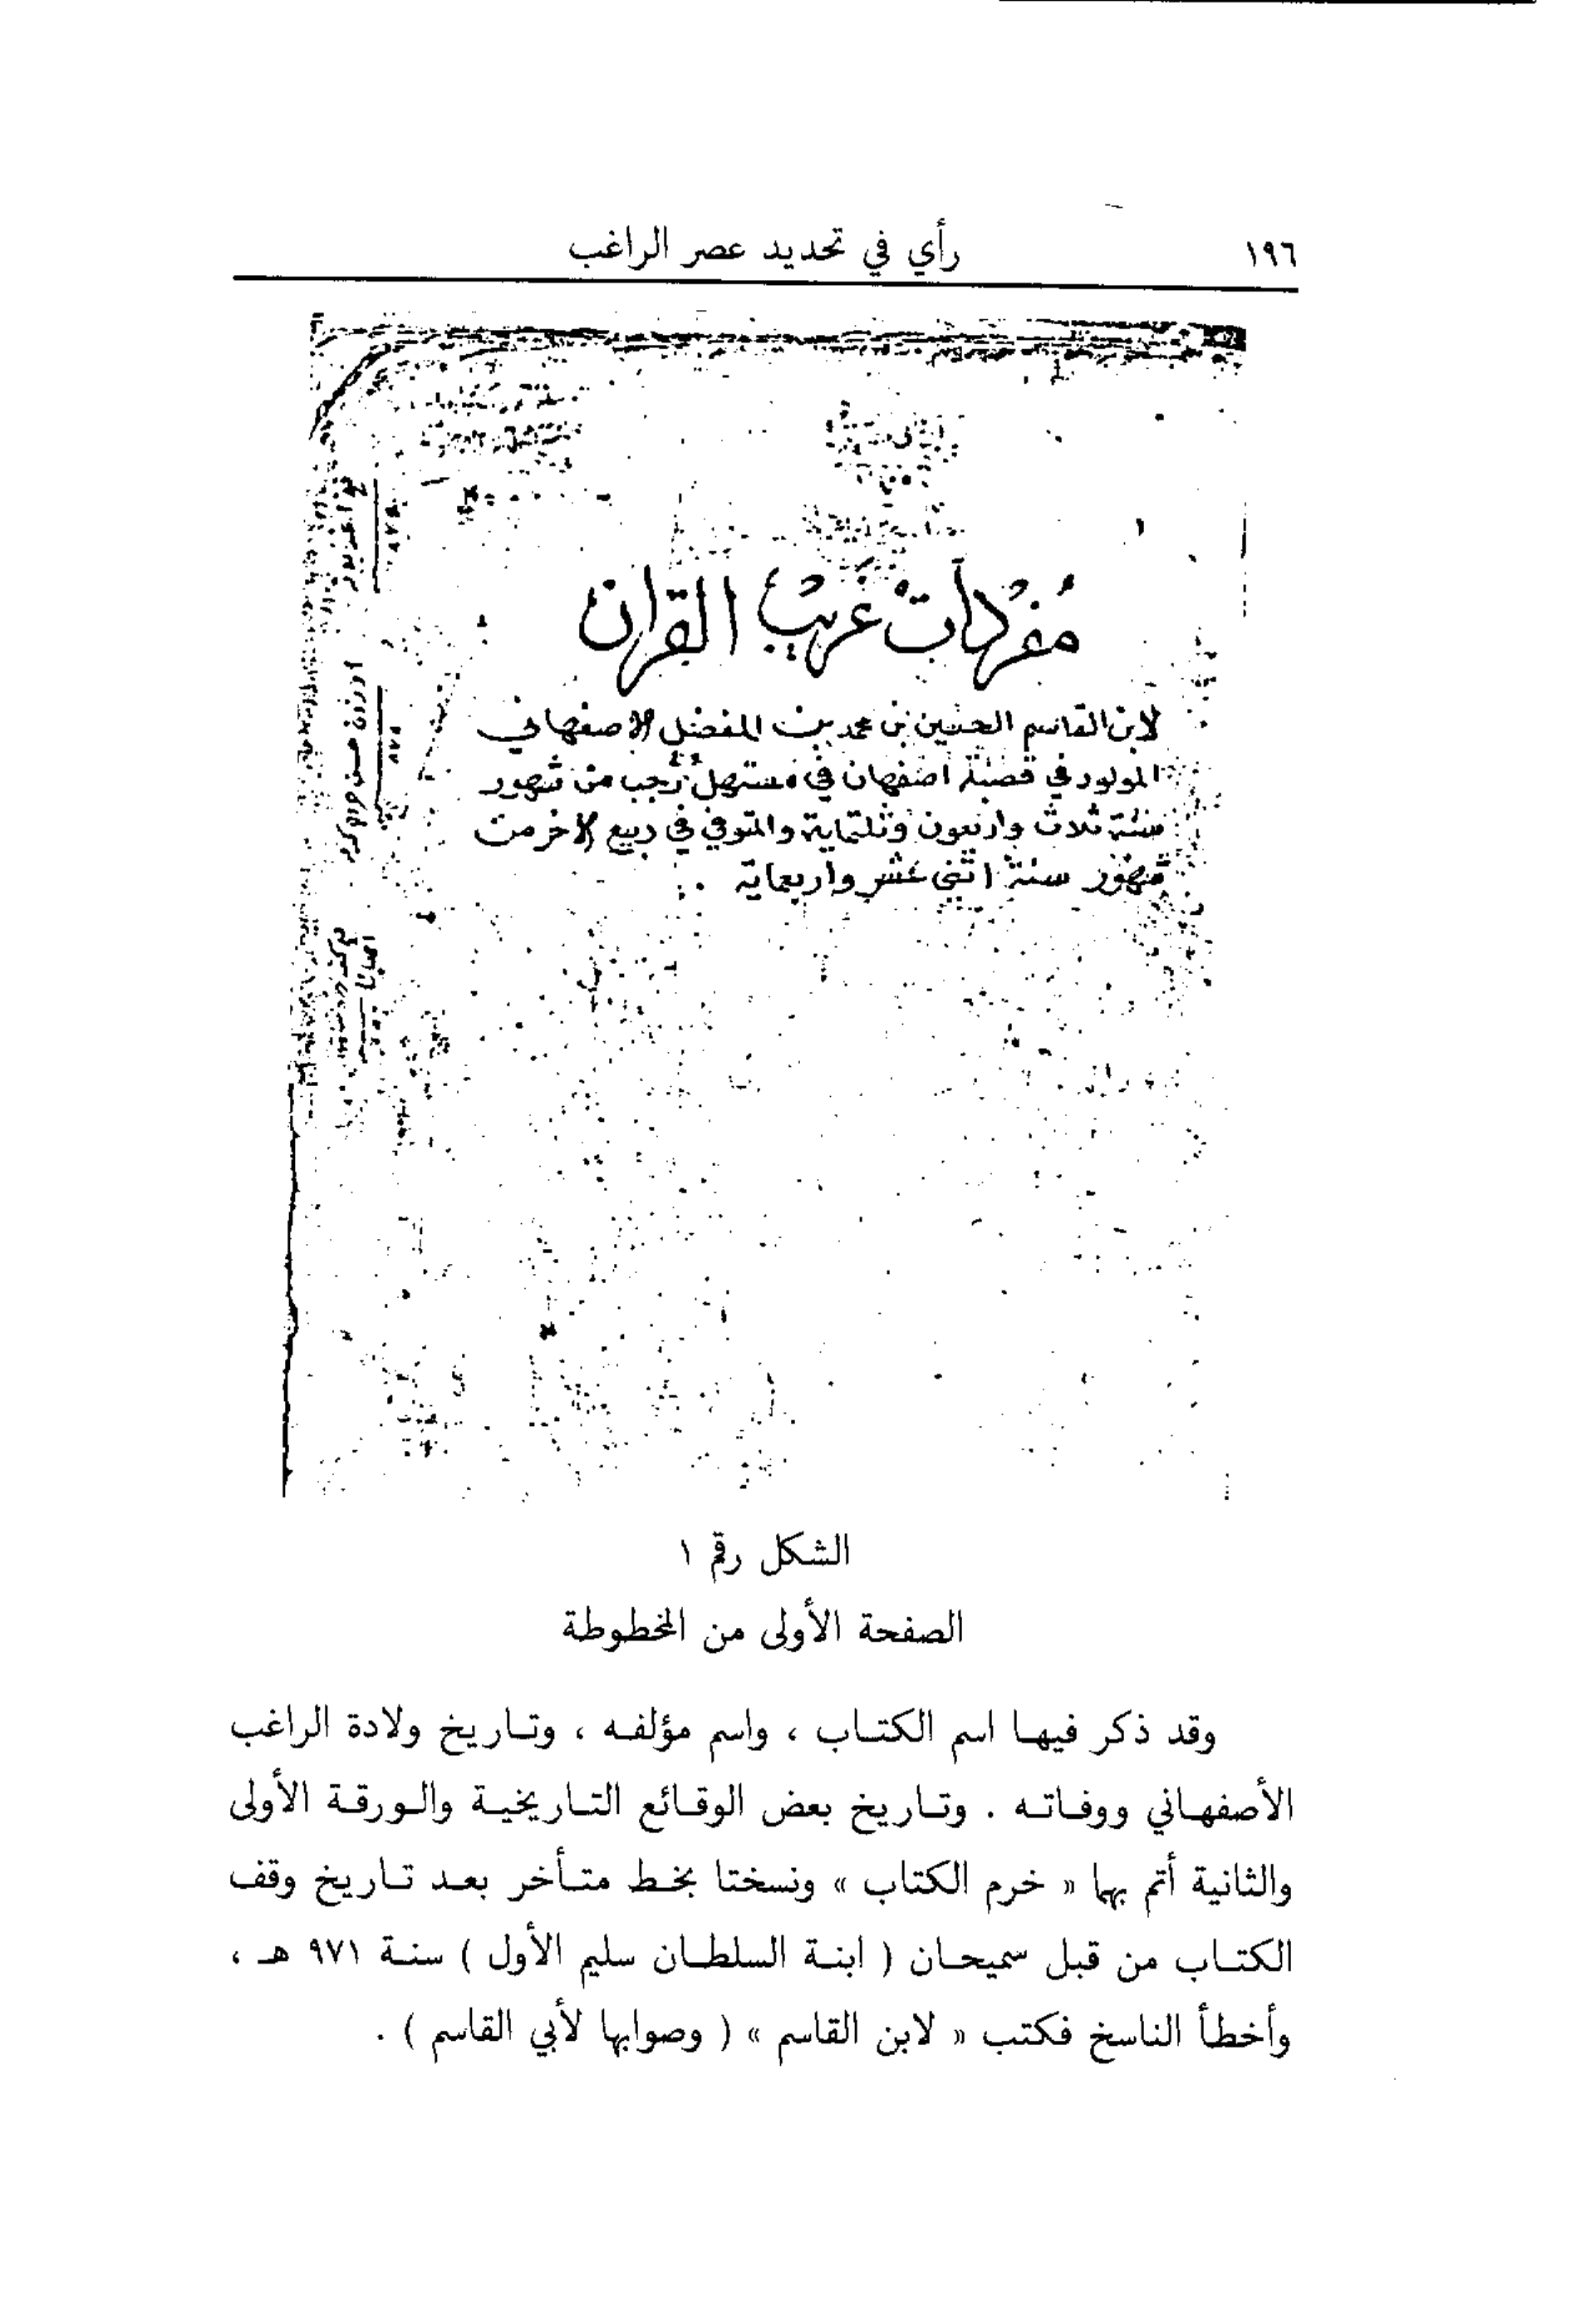 ١٩٦
رأي في تحديد عصر الراغب
مُفردَات غريب القرآن
لابن القاسم الحسين بن محمد بن المفضل الاصفهاني
المولود في قصبة اصفهان في مستهل رجب من شهور
سنة ثلاث واربعون وثلثماية والمتوفي في ربيع الاخر من
شهور سنة اثني عشر واربعماية
الشكل رقم ١
الصفحة الأولى من المخطوطة
وقد ذكر فيها اسم الكتاب ، واسم مؤلفه ، وتاريخ ولادة الراغب
الأصفهاني ووفاته . وتاريخ بعض الوقائع التاريخية والورقة الأولى
والثانية أتم بهما « خرم الكتاب » ونسختا بخط متأخر بعد تاريخ وقف
الكتاب من قبل سميحان ( ابنة السلطان سليم الأول ) سنة ٩٧١ هـ ،
وأخطأ الناسخ فكتب « لابن القاسم » ( وصوابها لأبي القاسم ) .